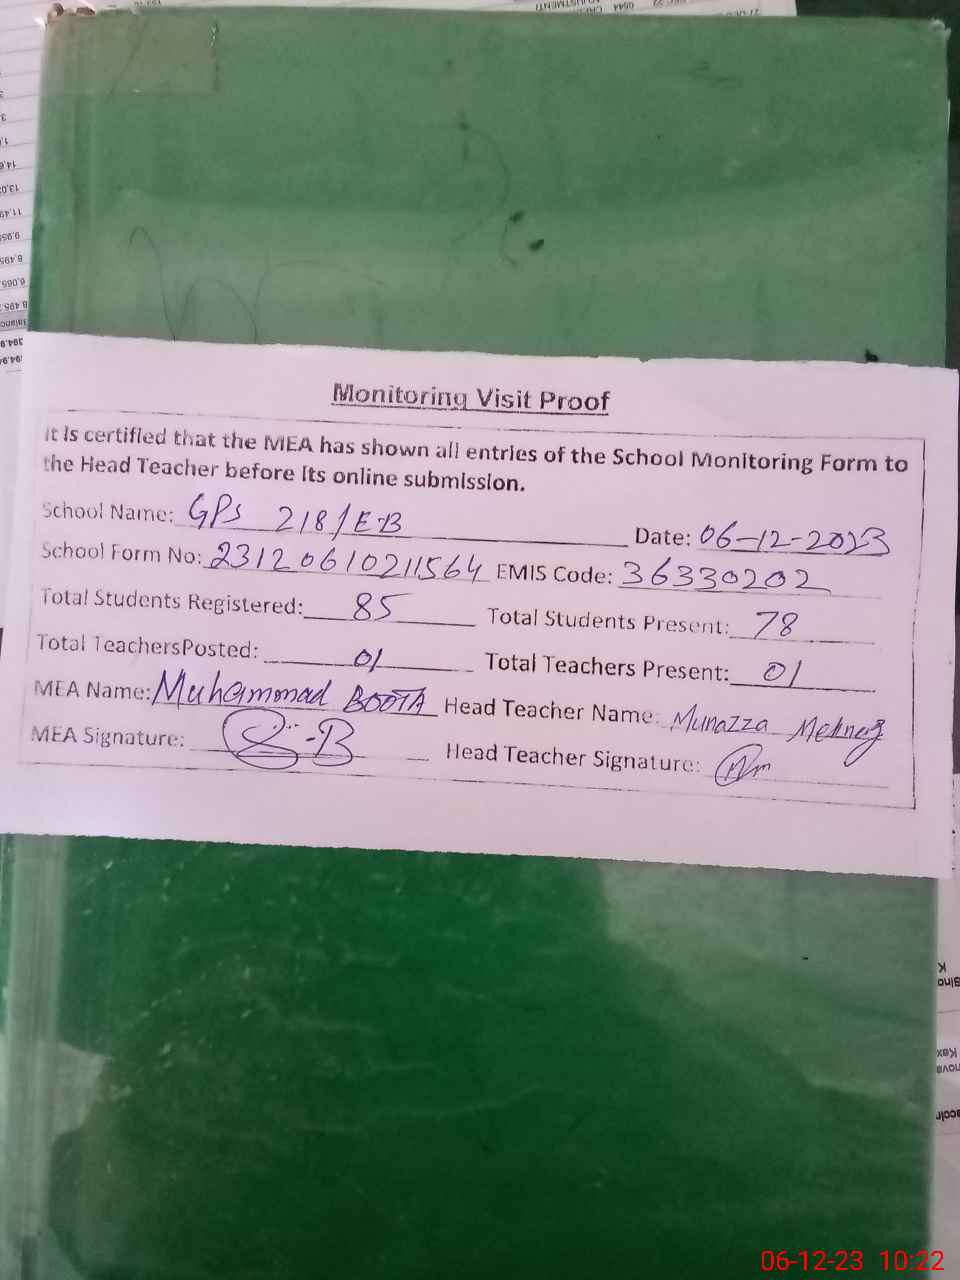 Monitoring Visit Proof
It is certified that the MEA has shown all entries of the School Monitoring Form to
the Head Teacher before its online submission.
School Name: GPS 218/E-B Date: 06-12-2023
School Form No: 23120610211564 EMIS Code: 36330202
Total Students Registered: 85 Total Students Present: 78
Total TeachersPosted: 01 Total Teachers Present: 01
MEA Name: Muhammad BOOTA Head Teacher Name: Munazza Mehnaz
MEA Signature: Head Teacher Signature:
06-12-23 10:22